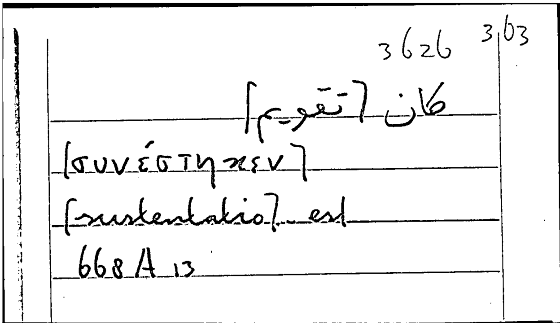 3626 3,63
كان [تقويم]
[συνέστηκεν]
[sustentatio] est
668 A 13